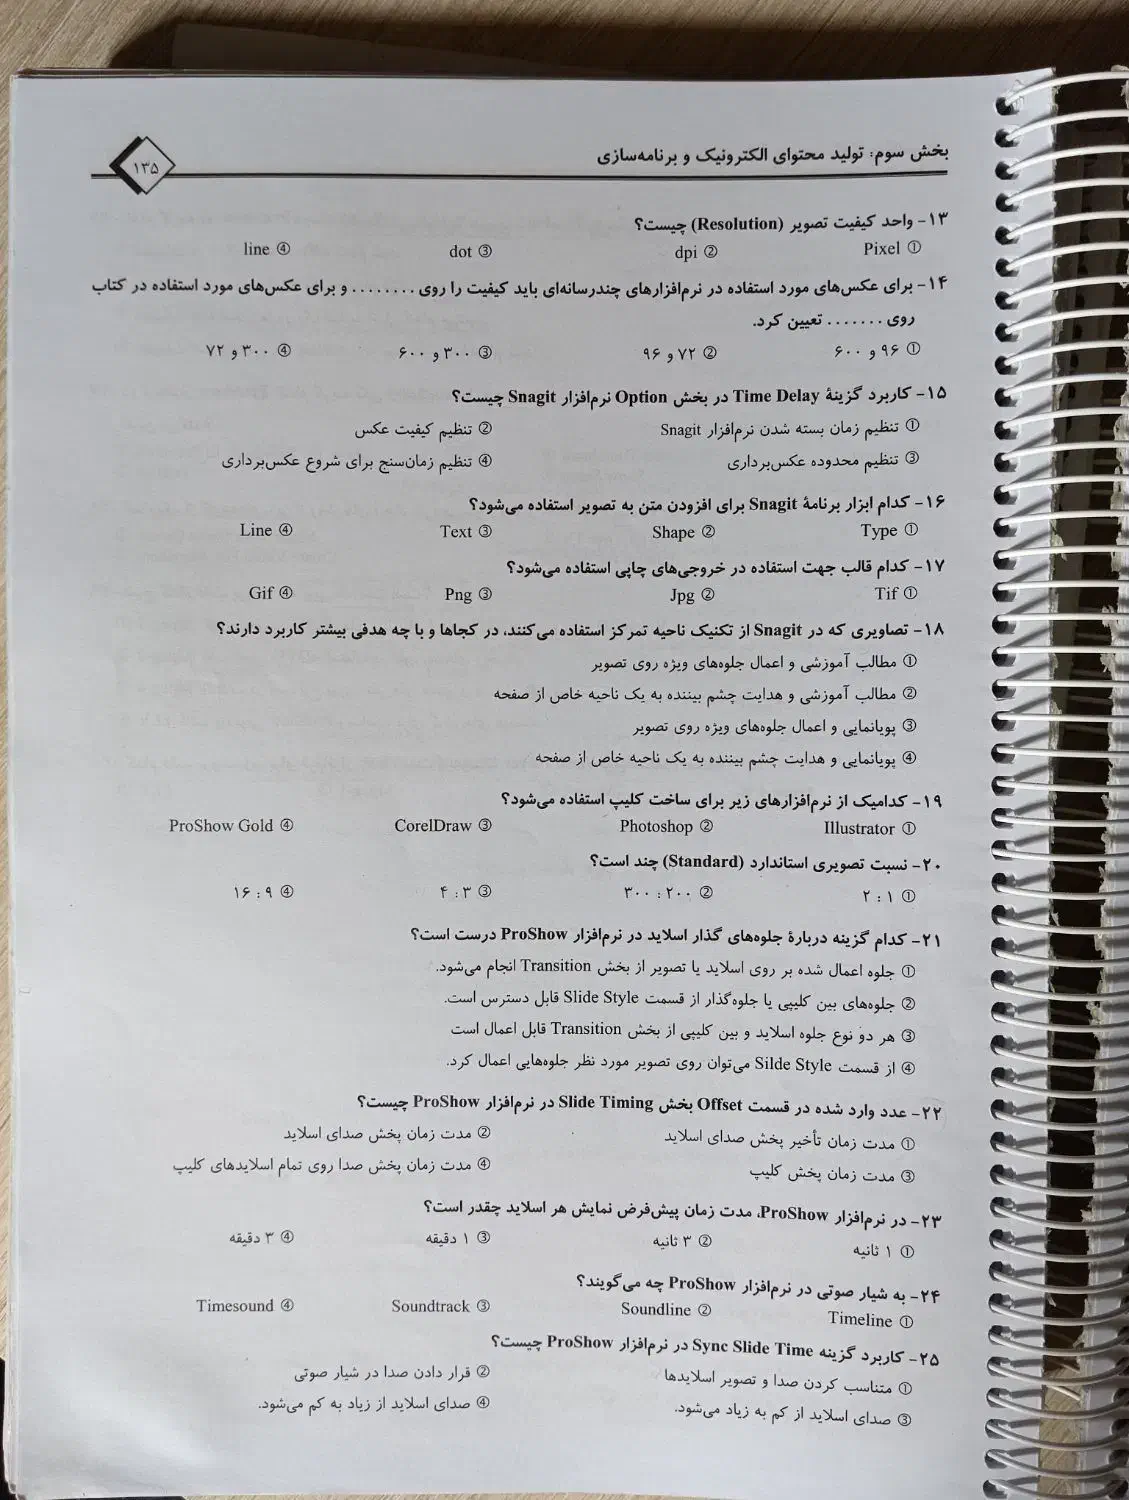 بخش سوم: تولید محتوای الکترونیک و برنامه‌سازی
۱۳۵
۱۳- واحد کیفیت تصویر (Resolution) چیست؟
① Pixel ② dpi ③ dot ④ line
۱۴- برای عکس‌های مورد استفاده در نرم‌افزارهای چندرسانه‌ای باید کیفیت را روی ........ و برای عکس‌های مورد استفاده در کتاب
روی ....... تعیین کرد.
① ۹۶ و ۶۰۰ ② ۷۲ و ۹۶ ③ ۳۰۰ و ۶۰۰ ④ ۳۰۰ و ۷۲
۱۵- کاربرد گزینۀ Time Delay در بخش Option نرم‌افزار Snagit چیست؟
① تنظیم زمان بسته شدن نرم‌افزار Snagit ② تنظیم کیفیت عکس
③ تنظیم محدوده عکس‌برداری ④ تنظیم زمان‌سنج برای شروع عکس‌برداری
۱۶- کدام ابزار برنامۀ Snagit برای افزودن متن به تصویر استفاده می‌شود؟
① Type ② Shape ③ Text ④ Line
۱۷- کدام قالب جهت استفاده در خروجی‌های چاپی استفاده می‌شود؟
① Tif ② Jpg ③ Png ④ Gif
۱۸- تصاویری که در Snagit از تکنیک ناحیه تمرکز استفاده می‌کنند، در کجاها و با چه هدفی بیشتر کاربرد دارند؟
① مطالب آموزشی و اعمال جلوه‌های ویژه روی تصویر
② مطالب آموزشی و هدایت چشم بیننده به یک ناحیه خاص از صفحه
③ پویانمایی و اعمال جلوه‌های ویژه روی تصویر
④ پویانمایی و هدایت چشم بیننده به یک ناحیه خاص از صفحه
۱۹- کدامیک از نرم‌افزارهای زیر برای ساخت کلیپ استفاده می‌شود؟
① Illustrator ② Photoshop ③ CorelDraw ④ ProShow Gold
۲۰- نسبت تصویری استاندارد (Standard) چند است؟
① ۱ : ۲ ② ۲۰۰ : ۳۰۰ ③ ۳ : ۴ ④ ۹ : ۱۶
۲۱- کدام گزینه دربارۀ جلوه‌های گذار اسلاید در نرم‌افزار ProShow درست است؟
① جلوه اعمال شده بر روی اسلاید یا تصویر از بخش Transition انجام می‌شود.
② جلوه‌های بین کلیپی یا جلوه‌گذار از قسمت Slide Style قابل دسترس است.
③ هر دو نوع جلوه اسلاید و بین کلیپی از بخش Transition قابل اعمال است
④ از قسمت Silde Style می‌توان روی تصویر مورد نظر جلوه‌هایی اعمال کرد.
۲۲- عدد وارد شده در قسمت Offset بخش Slide Timing در نرم‌افزار ProShow چیست؟
① مدت زمان تأخیر پخش صدای اسلاید ② مدت زمان پخش صدای اسلاید
③ مدت زمان پخش کلیپ ④ مدت زمان پخش صدا روی تمام اسلایدهای کلیپ
۲۳- در نرم‌افزار ProShow، مدت زمان پیش‌فرض نمایش هر اسلاید چقدر است؟
① ۱ ثانیه ② ۳ ثانیه ③ ۱ دقیقه ④ ۳ دقیقه
۲۴- به شیار صوتی در نرم‌افزار ProShow چه می‌گویند؟
① Timeline ② Soundline ③ Soundtrack ④ Timesound
۲۵- کاربرد گزینه Sync Slide Time در نرم‌افزار ProShow چیست؟
① متناسب کردن صدا و تصویر اسلایدها ② قرار دادن صدا در شیار صوتی
③ صدای اسلاید از کم به زیاد می‌شود. ④ صدای اسلاید از زیاد به کم می‌شود.